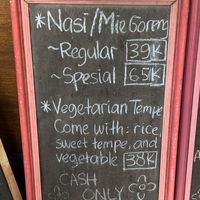 *Nasi/Mie Goreng
~Regular 39K
~Spesial 65K
*Vegetarian Tempe
Come with: rice,
sweet tempe, and
vegetable 38K
CASH
ONLY